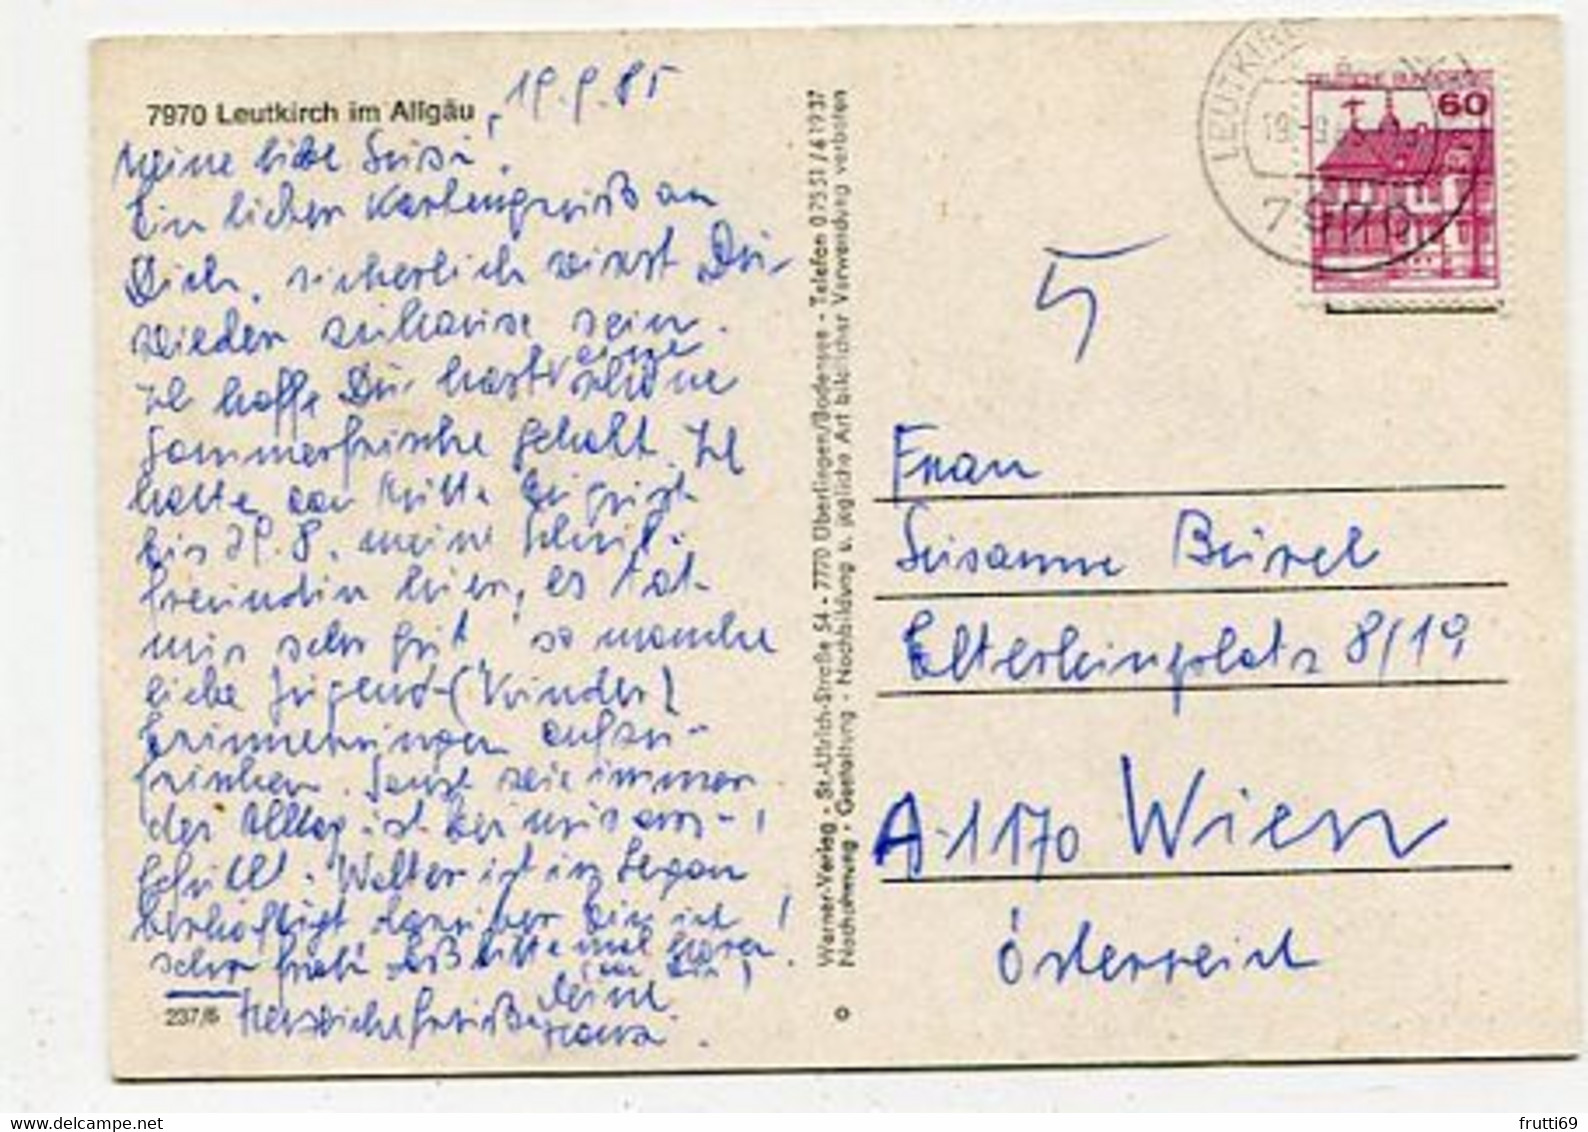 7970 Leutkirch im Allgäu
19.9.85
Meine liebe Susi!
Ein lieber Kartengruß an
Dich, sicherlich wirst Du
wieder zuhause sein.
Ich hoffe Du hast eine schöne
Sommerfrische gehabt. Ich
hatte von Mitte August
bis 29.8. meine Schul-
freundin hier, es tat
mir sehr gut so manche
liebe Jugend-(Kinder)
Erinnerungen aufzu-
frischen. Sonst wie immer
der Alltag ist bei uns aus-
gefüllt. Walter ist in
beschäftigt darüber bin ich
sehr froh laß bitte mal hören!
Herzliche Grüße Deine
237/6
Werner-Verlag - St.-Ulrich-Straße 54 - 7770 Überlingen/Bodensee - Telefon 07551/61937
Nachahmung - Gestaltung - Nachbildung u. jegliche Art bildlicher Verwendung verboten
LEUTKIRCH
19.-9.
7970
DEUTSCHE BUNDESPOST
60
5
Frau
Susanne
Elterleinplatz 8/19
A-1170 Wien
Österreich
frutti69